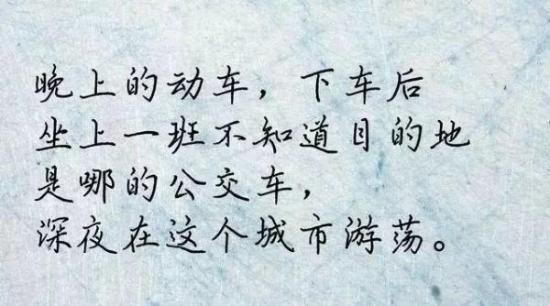 晚上的动车，下车后
坐上一班不知道目的地
是哪的公交车，
深夜在这个城市游荡。